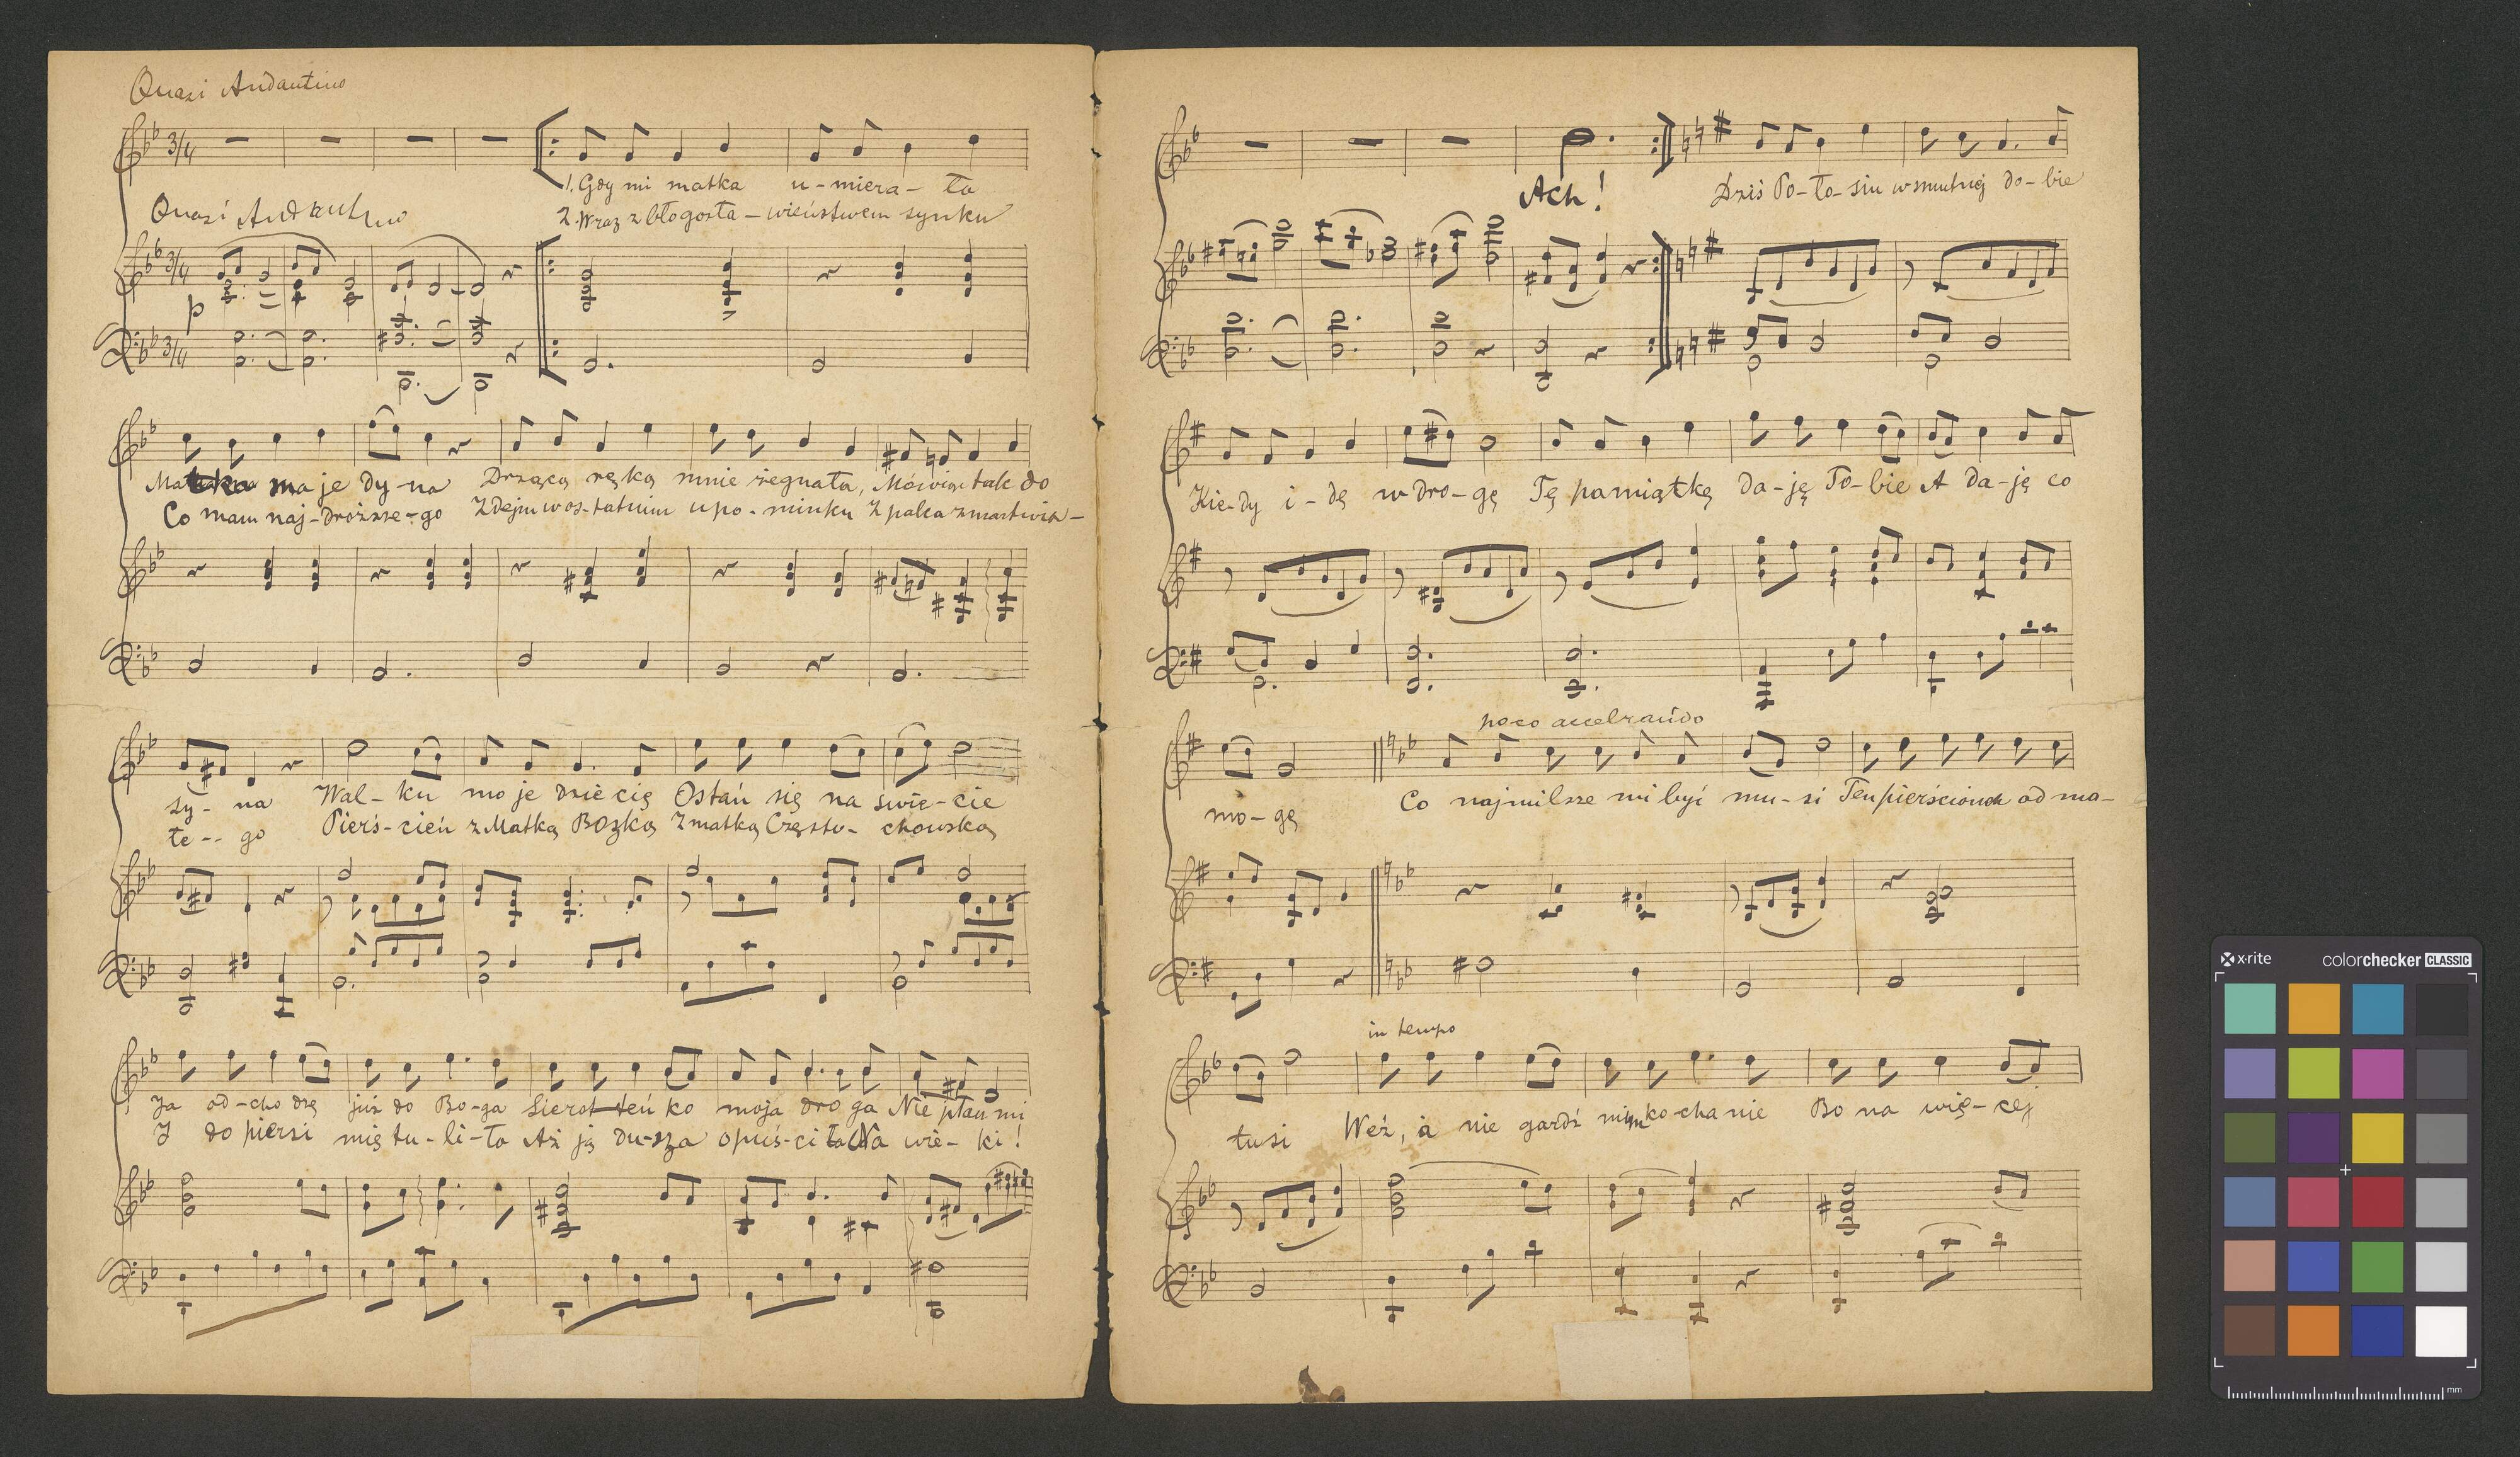 Quasi Andantino
3/4
1. Gdy mi matka u-miera-ła
2. Wraz z błogosła-wieństwem synku
Quasi Andantino
3/4
p
3/4
Matka ma je dy-na Drżącą ręką mnie żegnała, Mówiąc tak do
Co mam naj-droższe-go Zdejm w os-tatnim upo-minku Z palca zmartwia-
sy-na Wal-ku moje dziecię Ostań się na świe-cie
łe--go Pierś-cień z Matką Bozką Z matką Często-chowską
Ja od-cho dzę już do Bo-ga Sierot-eń ko moja dro ga Nie płacz mi
I do piersi mię tu-li-ła Aż ją du-sza opuś-ci ła Na wie-ki!
Ach! Dziś Po-to-siu w smutnej do-bie
Kie-dy i-dę w dro-gę Tę pamiątkę da-ję To-bie A da-ję co
poco accelrando
mo-gę Co najmilsze mi być mu-si Ten pierścionek od ma-
in tempo
tusi Weź, a nie gardź nim kochanie Bo na wię-cej
x-rite colorchecker CLASSIC
mm